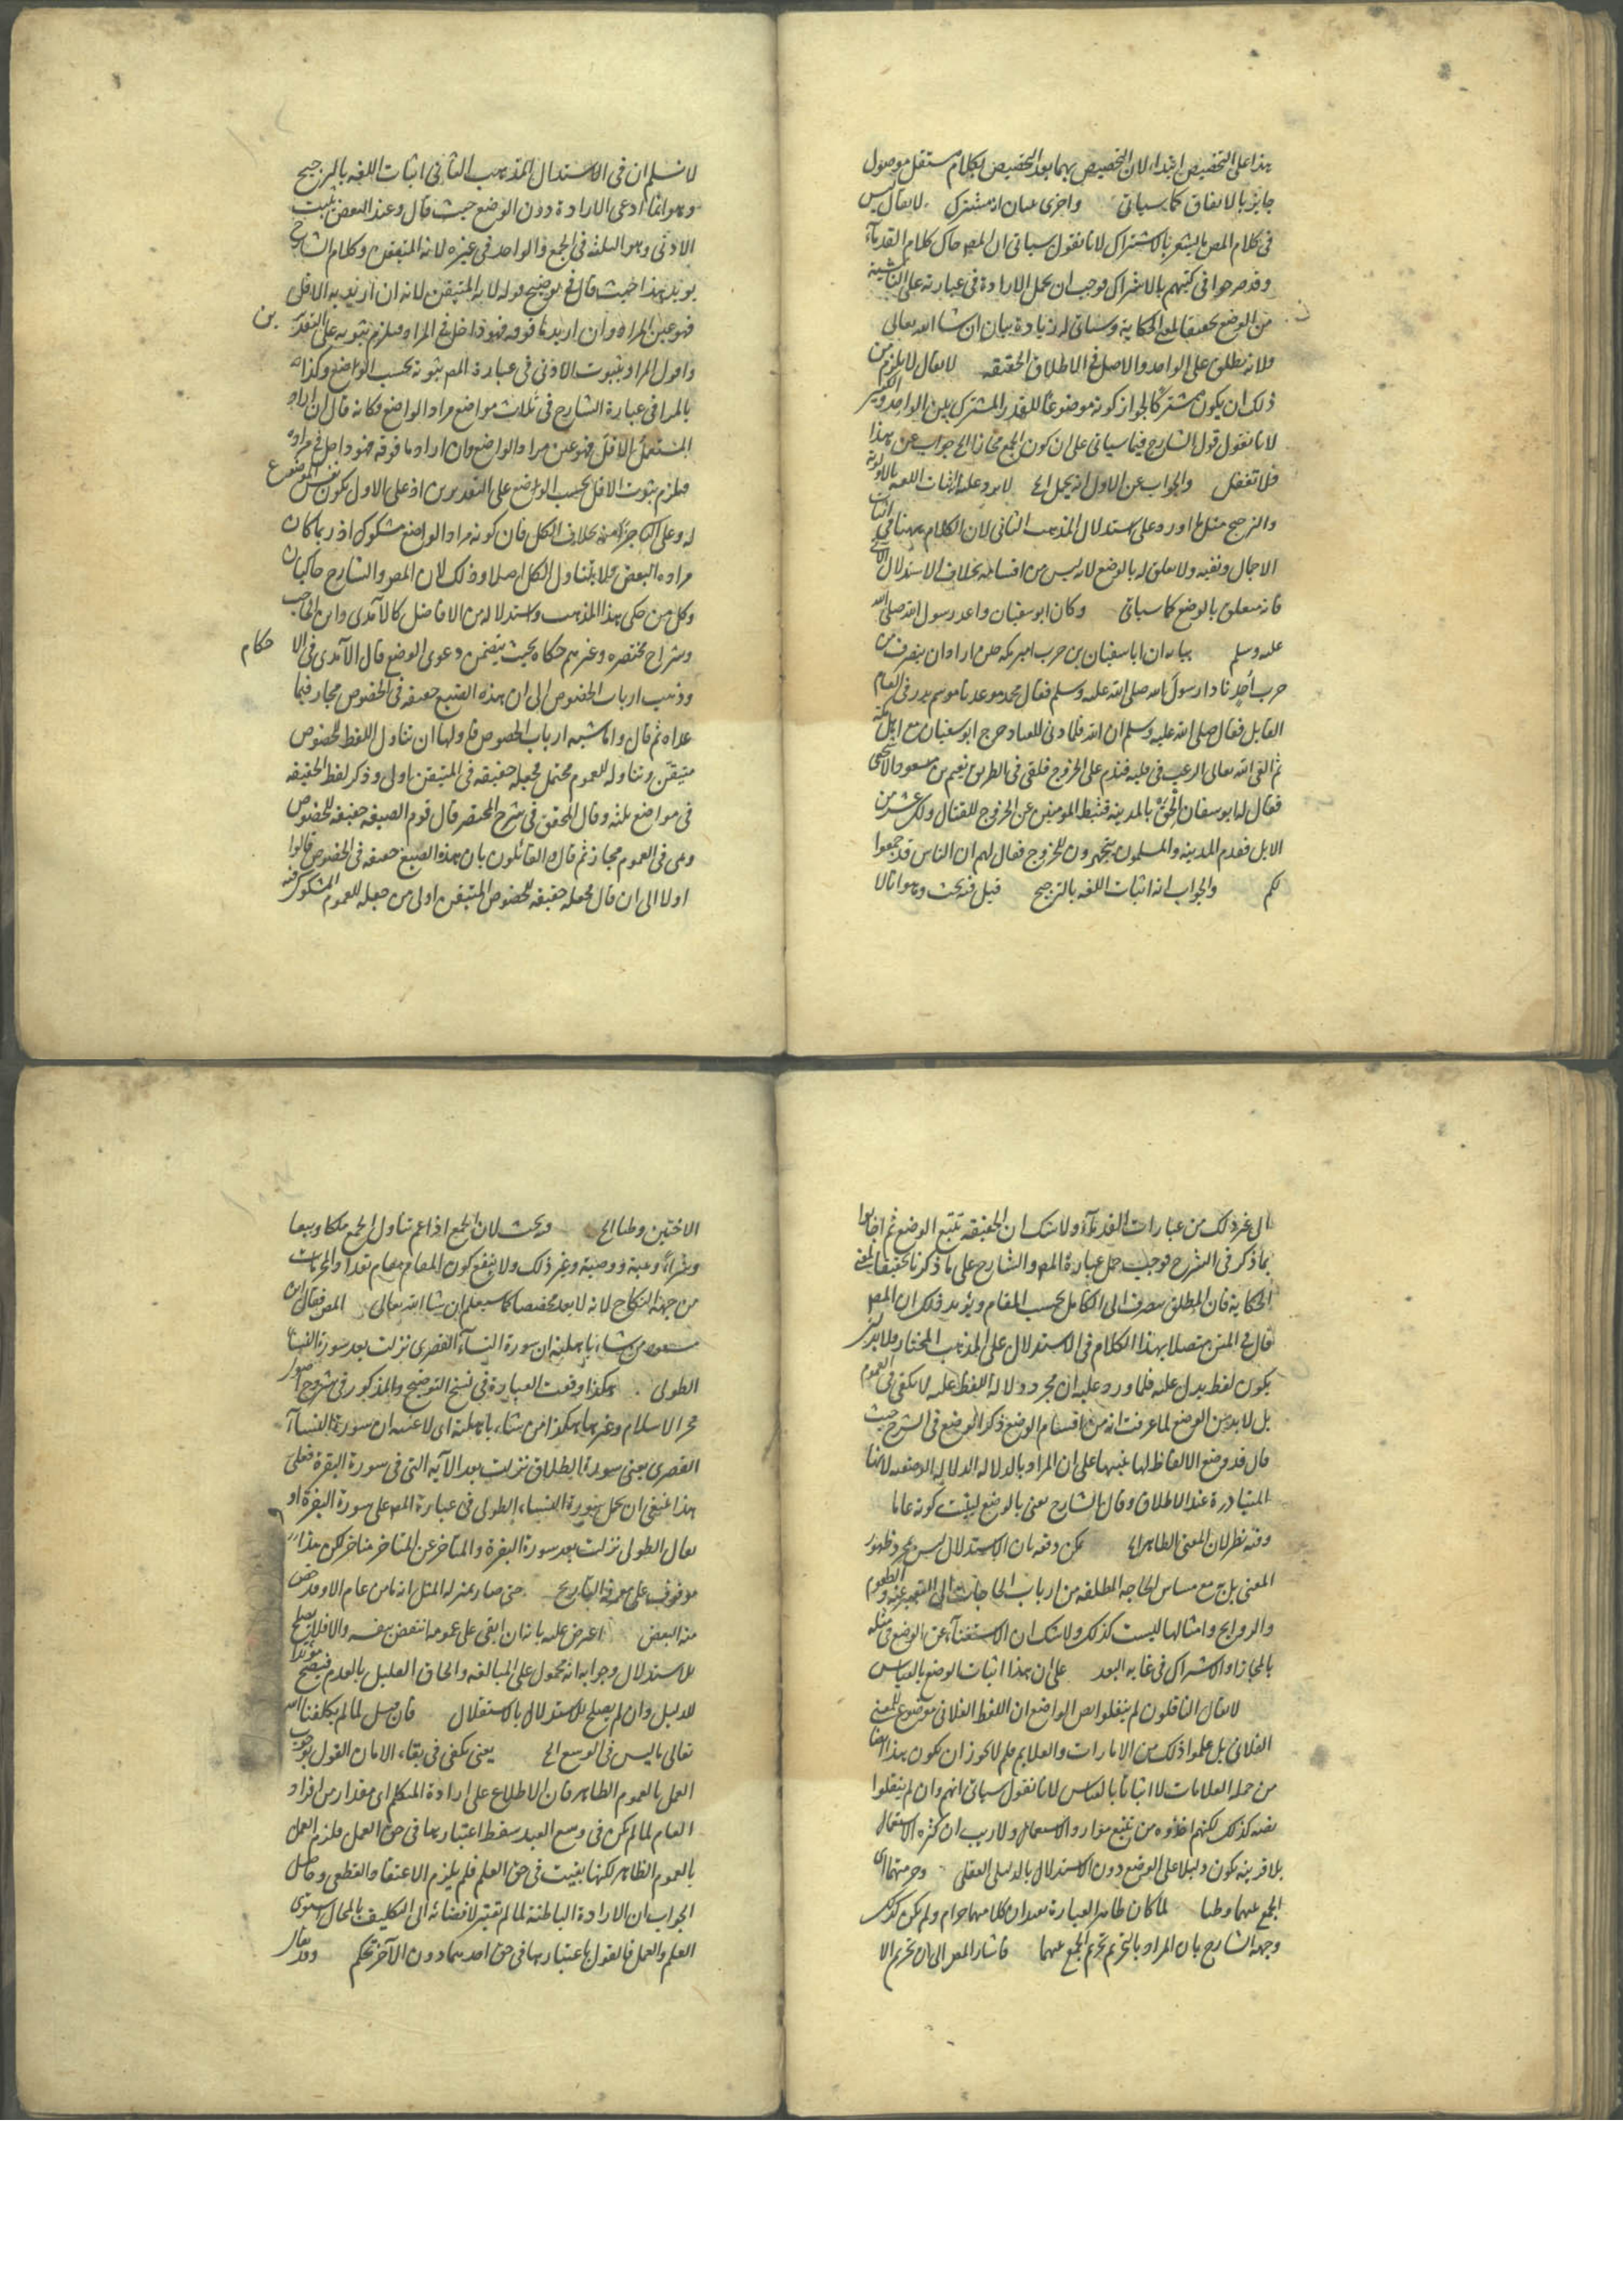 هذا على التخصيص ابتداء لان التخصيص بهما بعد التخصيص بكلام مستقل موصول
جايز بالاتفاق كما سياتى واخرى عيان انه مشترك لا يقال ليس
فى كلام المص ما يشعر بالاشتراك لانا نقول سياتى ان المص حاك كلام القدماء
وقد صرحوا فى كتبهم بالاشتراك فوجب ان يحمل الارادة فى عبارته على الناشية
من الوضع تحقيقا لمعنى الحكاية وسياتى له زيادة بيان ان شا الله تعالى
ولانه يطلق على الواحد والاصل فى الاطلاق الحقيقه لا يقال لا يلزم من
ذلك ان يكون مشتركا لجواز كونه موضوعا للقدر المشترك بين الواحد والكثير
لانا نقول قول الشارح فيما سياتى على ان كون الجمع مجازا الخ جواب عن هذا
فلا تغفل والجواب عن الاول انه يحمل الخ لا يرد عليه اثبات اللغه بالاولوية
والترجيح مثل ما اورد على استدلال المذهب الثانى لان الكلام ههنا فى اثبات
الاجمال ونفيه ولا تعلق له بالوضع لانه ليس من اقسامه بخلاف الاستدلال الاتى
فانه متعلق بالوضع كما سياتى وكان ابو سفيان واعد رسول الله صلى الله
عليه وسلم بيانه ان ابا سفيان بن حرب امير مكه حين اراد ان ينصرف من
حرب احد نادا رسول الله صلى الله عليه وسلم فقال محمد موعدنا موسم بدر فى العام
القابل فقال صلى الله عليه وسلم ان شا الله فلما دنى الميعاد خرج ابو سفيان مع اهل مكة
ثم القى الله تعالى الرعب فى قلبه فندم على الخروج فلقى فى الطريق نعيم بن مسعود الاشجعى
فقال له ابو سفيان الحق بالمدينه فثبط المومنين عن الخروج للقتال ولك عشر من
الابل فقدم المدينه والمسلمون يتجهزون للخروج فقال لهم ان الناس قد جمعوا
لكم والجواب انه اثبات اللغه بالترجيح قيل فيه بحث وهو انا لا
لا نسلم ان فى الاستدلال للمذهب الثانى اثبات اللغه بالترجيح
وهو انما ادعى الارادة دون الوضع حيث قال وعند البعض يثبت
الادنى وهو الثلثه فى الجمع والواحد فى غيره لانه المتيقن وكلام الشارح
يويد هذا حيث قال فى توضيح قوله لانه المتيقن لانه ان اريد به الاقل
فهو عين المراد وان اريد ما فوقه فهو داخل فى المراد فيلزم ثبوته على التقديرين
واقول المراد بثبوت الادنى فى عبارة المص ثبوته بحسب الوضع وكذا
بالمراد فى عبارة الشارح فى ثلاث مواضع مراد الواضع وكانه قال ان اراد
المستعمل الاقل فهو عين مراد الواضع وان اراد ما فوقه فهو داخل فى مراده
فيلزم ثبوت الاقل بحسب الوضع على التقديرين اذ على الاول يكون نفس الموضوع
له وعلى الثانى جزأ منه بخلاف الكل فان كونه مراد الواضع مشكوك اذ ربما كان
مراده البعض فلا يتناول الكل اصلا وذلك لان المص والشارح حاكيان
وكل من حكى هذا المذهب واستدلاله من الافاضل كالآمدى وابن الحاجب
وشراح مختصره وغيرهم حكاه بحيث يتضمن دعوى الوضع قال الآمدى فى الاحكام
وذهب ارباب الخصوص الى ان هذه الصيغ حقيقه فى الخصوص مجاز فيما
عداه ثم قال واما شبه ارباب الخصوص فاولها ان تناول اللفظ للخصوص
متيقن وتناوله للعموم محتمل فجعله حقيقه فى المتيقن اولى وذكر لفظ الحقيقه
فى مواضع ثلثه وقال المحقق فى شرح المختصر قال قوم الصيغه حقيقه للخصوص
وهى فى العموم مجاز ثم قال القائلون بان هذه الصيغ حقيقه فى الخصوص قالوا
اولا الى ان قال فجعله حقيقه للخصوص المتيقن اولى من جعله للعموم المشكوك فيه
الى غير ذلك من عبارات القدماء ولا شك ان الحقيقه تتبع الوضع ثم اجابوا
بما ذكر فى الشرح فوجب حمل عبارة المص والشارح على ما ذكرنا تحقيقا لمعنى
الحكاية فان المطلق ينصرف الى الكامل بحسب المقام ويؤيد ذلك ان المص
قال فى المتن متصلا بهذا الكلام فى الاستدلال على المذهب المختار فلا بد ان
يكون لفظ يدل عليه فلما ورد عليه ان مجرد دلالة اللفظ عليه لا يكفى فى العموم
بل لا بد من الوضع لما عرفت انه من اقسام الوضع ذكر الوضع فى الشرح حيث
قال قد وضع الالفاظ لها تنبيها على ان المراد بالدلاله الدلاله الوضعيه لانها
المتبادرة عند الاطلاق وقال الشارح يعنى بالوضع ليثبت كونه عاما
وفيه نظر لان المعنى الظاهر الخ يمكن دفعه بان الاستدلال ليس بمجرد ظهور
المعنى بل مع مساس الحاجه المطلقه من ارباب الحاجات الى التعبير عنه والطعوم
والروايح وامثالها ليست كذلك ولا شك ان الاستغناء عن الوضع فى مثله
بالمجاز او الاشتراك فى غايه البعد على ان هذا اثبات الوضع بالقياس
لا يقال الناقلون لم ينقلوا نص الواضع ان اللفظ الفلانى موضوع للمعنى
الفلانى بل علموا ذلك من الامارات والعلايم فلم لا يجوز ان يكون هذا ايضا
من جملة العلامات لا اثباتا بالقياس لانا نقول سياتى انهم وان لم ينقلوا
نصه كذلك لكنهم اخذوه من تتبع موارد الاستعمال ولا ريب ان كثرة الاستعمال
بلا قرينه يكون دليلا على الوضع دون الاستدلال بالدليل العقلى وحرمتهما اى
الجمع بينهما وطئا لما كان ظاهر العبارة يفيد ان كلا منهما حرام ولم يكن كذلك
وجهه الشارح بان المراد بالتحريم تحريم الجمع بينهما فاشار المص الى ان تحريم الا
الاختين وطئا الخ فيه بحث لان الجمع اذا عم تناول الجمع ملكا وبيعا
وشراء وهبة ووصية وغير ذلك ولا ينفع كون المقام مقام تعداد المحرمات
من جهة النكاح لانه لا يعد مخصصا كما سيعلم ان شا الله تعالى المص فقال ابن
مسعود من شاء باهلته ان سورة النساء القصرى نزلت بعد سورة النساء
الطولى هكذا وقعت العبارة فى نسخ التوضيح والمذكور فى شروح اصول
فخر الاسلام وغيرها هكذا من شاء باهلته اى لاعنته ان سورة النساء
القصرى يعنى سورة الطلاق نزلت بعد الآيه التى فى سورة البقرة فعلى
هذا ينبغى ان يحمل سورة النساء الطولى فى عبارة المص على سورة البقرة او
يقال الطولى نزلت بعد سورة البقرة والمتاخر عن المتاخر متاخر لكن هذا
موقوف على معرفة التاريخ حتى صار بمنزلة المثل انه ما من عام الا وقد خص
منه البعض اعترض عليه بانه ان ابقى على عمومه انتقض بنفسه والا فلا يصلح
للاستدلال وجوابه انه محمول على المبالغه والحاق القليل بالعدم فيصح مؤيدا
للدليل وان لم يصلح للاستدلال بالاستقلال فان قيل لما لم يكلفنا الله
تعالى ما ليس فى الوسع الخ يعنى يكفى فى بقاء الامان القول بوجوب
العمل بالعموم الظاهر فان الاطلاع على ارادة المتكلم اى مقدار من افراد
العام لما لم يكن فى وسع العبد سقط اعتبارها فى حق العمل فلزم العمل
بالعموم الظاهر لكنها بقيت فى حق العلم فلم يلزم الاعتقاد القطعى وحاصل
الجواب ان الارادة الباطنة لما لم تعتبر لافضائه الى التكليف بالمحال استوى
العلم والعمل فالقول باعتبارها فى حق احدهما دون الآخر تحكم وقد يقال